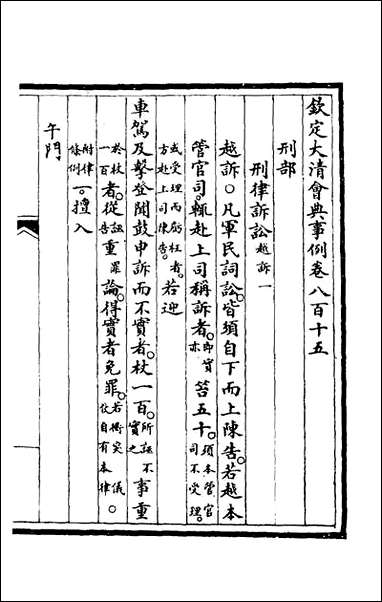 欽定大清會典事例卷八百十五
刑部
刑律訴訟越訴一
越訴○凡軍民詞訟皆須自下而上陳告若越本
管官司輒赴上司稱訴者即實亦笞五十須本管官司不受理
或受理而虧枉者方赴上司陳告若迎
車駕及擊登聞鼓申訴而不實者杖一百所誣不實之事重
於杖一百者從誣告重罪論得實者免罪若衝突儀仗自有本律○
附律條例一擅入
午門